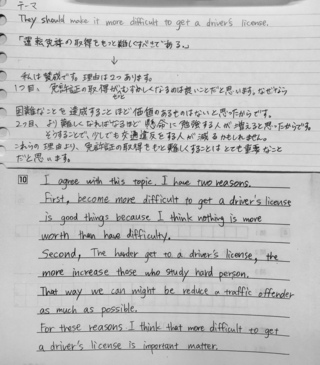 テーマ
They should make it more difficult to get a driver's license.
「運転免許の取得をもっと難しくすべきである。」
↓
私は賛成です。理由は2つあります。
1つ目、免許証の取得がもっとむずかしくなるのは良いことだと思います。なぜなら
困難なことを達成することほど価値のあるものはないと思ったからです。
2つ目、より難しくなればなるほど懸命に勉強する人が増えると思ったからです。
そうすることで、少しでも交通違反をする人が減るかもしれません。
これらの理由より、免許証の取得をもっと難しくすることはとても重要なこと
だと思います。
10 I agree with this topic. I have two reasons.
First, become more difficult to get a driver's license
is good things because I think nothing is more
worth than have difficulty.
Second, The harder get to a driver's license, the
more increase those who study hard person.
That way we can might be reduce a traffic offender
as much as possible.
For these reasons I think that more difficult to get
a driver's license is important matter.